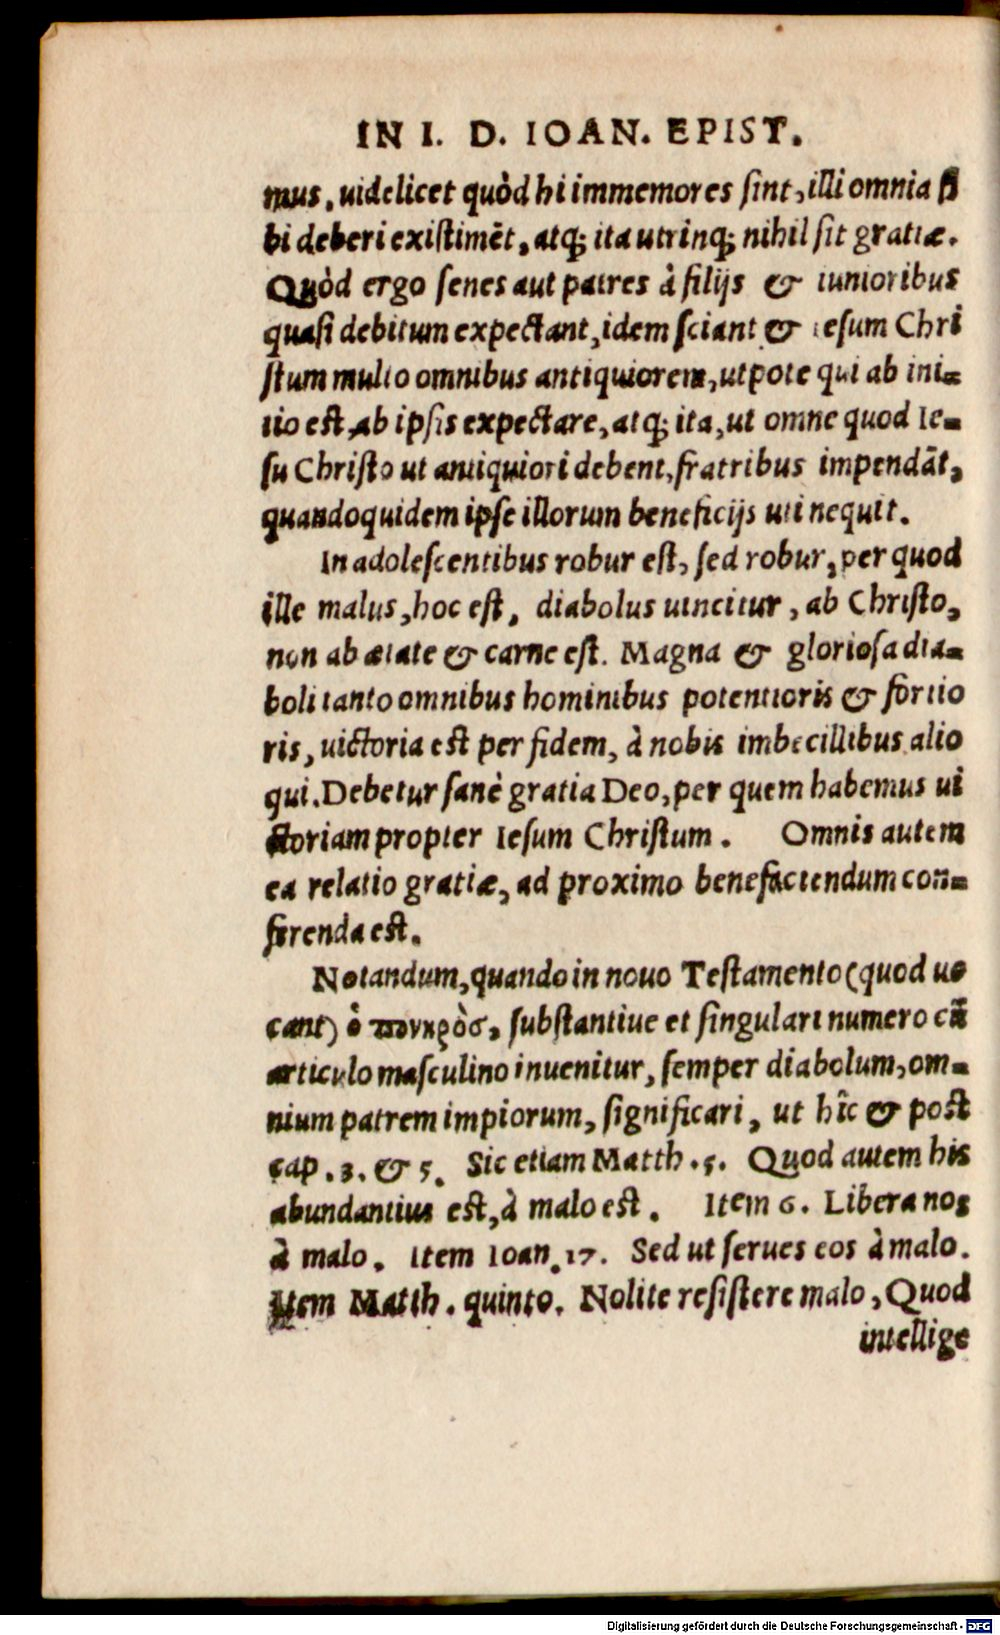 IN I. D. IOAN. EPIST.
mus, uidelicet quòd hi immemores sint, illi omnia si
bi deberi existimēt, atq; ita utrinq; nihil sit gratiæ.
Quòd ergo senes aut patres à filijs & iunioribus
quasi debitum expectant, idem sciant & Iesum Chri
stum multo omnibus antiquiorem, utpote qui ab ini-
tio est, ab ipsis expectare, atq; ita, ut omne quod Ie-
su Christo ut antiquiori debent, fratribus impendāt,
quandoquidem ipse illorum beneficijs uti nequit.
In adolescentibus robur est, sed robur, per quod
ille malus, hoc est, diabolus uincitur, ab Christo,
non ab ætate & carne est. Magna & gloriosa dia-
boli tanto omnibus hominibus potentioris & fortio
ris, uictoria est per fidem, à nobis imbecillibus alio
qui. Debetur sanè gratia Deo, per quem habemus ui
ctoriam propter Iesum Christum. Omnis autem
ea relatio gratiæ, ad proximo benefaciendum con-
ferenda est.
Notandum, quando in nouo Testamento (quod uo
cant) ὁ πονηρὸσ, substantiue et singulari numero cū
articulo masculino inuenitur, semper diabolum, om-
nium patrem impiorum, significari, ut hîc & post
cap. 3. & 5. Sic etiam Matth. 5. Quod autem his
abundantius est, à malo est. Item 6. Libera nos
à malo. Item Ioan. 17. Sed ut serues eos à malo.
Item Matth. quinto. Nolite resistere malo, Quod
intellige
Digitalisierung gefördert durch die Deutsche Forschungsgemeinschaft - DFG